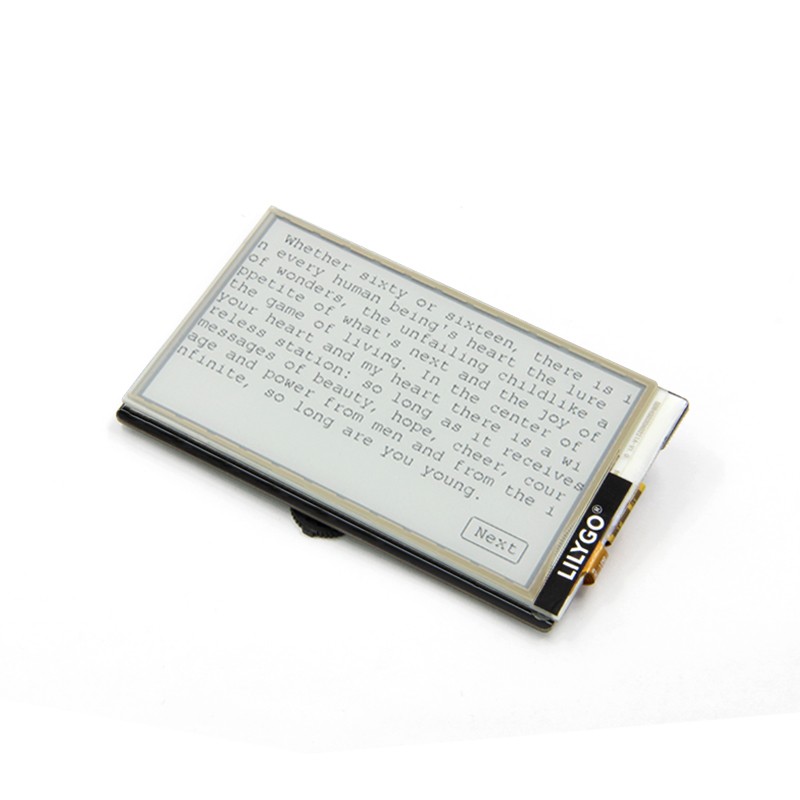 Whether sixty or sixteen, there is i
n every human being's heart the lure
of wonders, the unfailing childlike a
ppetite of what's next and the joy of
the game of living. In the center of
your heart and my heart there is a wi
reless station: so long as it receives
messages of beauty, hope, cheer, cour
age and power from men and from the i
nfinite, so long are you young.
Next
LILYGO®